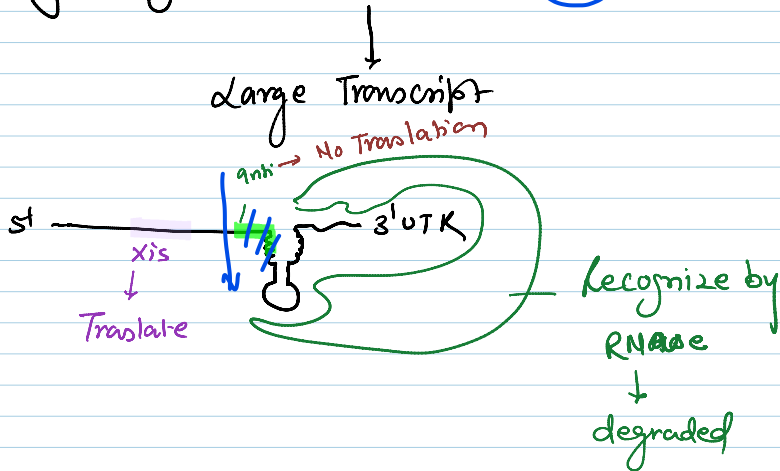 Large Transcript
anti → No Traslation
5'
3' UTR
xis
↓
Traslate
Recognize by
RNAase
↓
degraded